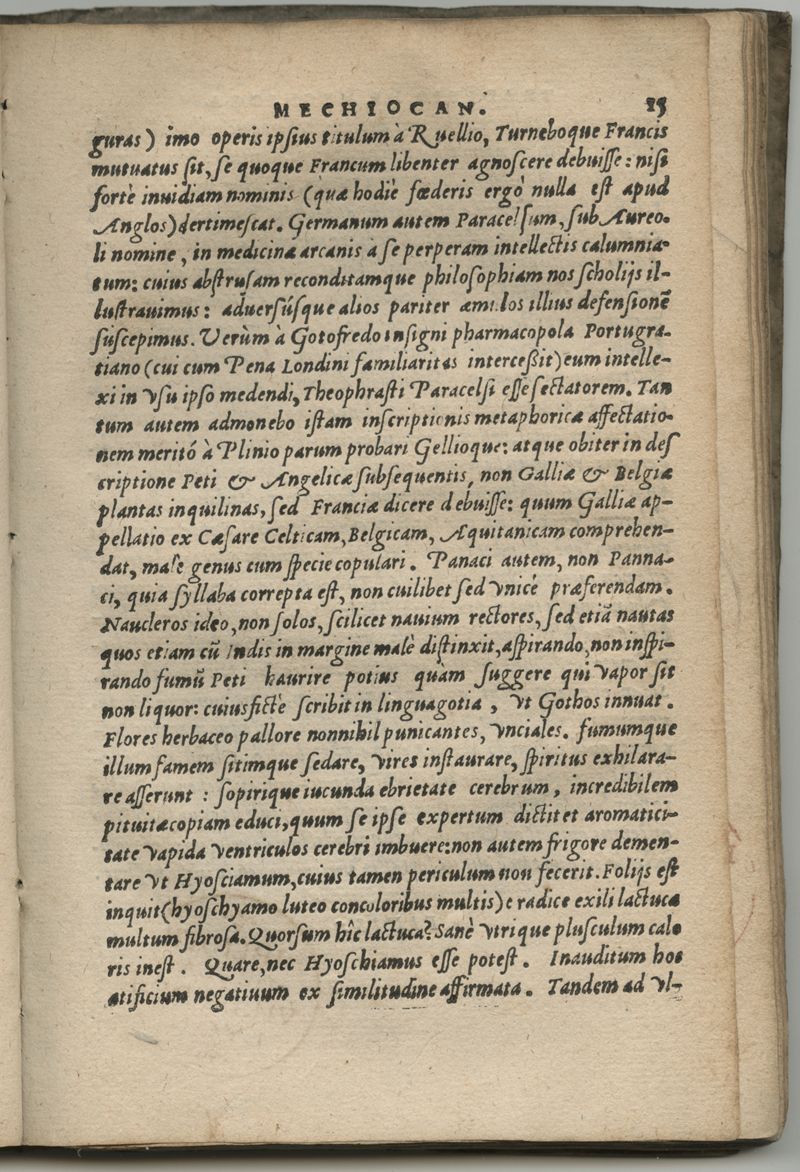 MECHIOCAN. 15
guras) imo operis ipsius titulum à Ruellio, Turneboque Francis
mutuatus sit, se quoque Francum libenter agnoscere debuisse: nisi
fortè inuidiam nominis (quæ hodiè fœderis ergò nulla est apud
Anglos) dertimescat. Germanum autem Paracelsum, sub Aureo-
li nomine, in medicinæ arcanis à se perperam intellectis calumnia-
tum: cuius abstrusam reconditamque philosophiam nos scholijs il-
lustrauimus: aduersúsque alios pariter æmulos illius defensionẽ
suscepimus. Verùm à Gotofredo insigni pharmacopola Portugra-
tiano (cui cum Pena Londini familiaritas intercessit) eum intelle-
xi in vsu ipso medendi, Theophrasti Paracelsi esse sectatorem. Tan
tum autem admonebo istam inscriptionis metaphoricæ affectatio-
nem meritó à Plinio parum probari Gellioque: atque obiter in des
criptione Peti & Angelicæ subsequentis, non Galliæ & Belgiæ
plantas inquilinas, sed Franciæ dicere debuisse: quum Galliæ ap-
pellatio ex Cæsare Celticam, Belgicam, Aquitanicam comprehen-
dat, male genus cum specie copulari. Panaci autem, non Panna-
ci, quia syllaba correpta est, non cuilibet sed vnicè præferendam.
Naucleros ideo, non solos, scilicet nauium rectores, sed etiã nautas
quos etiam cũ Indis in margine malè distinxit, aspirando, non inspi-
rando fumũ Peti haurire potius quàm suggere qui vapor sit
non liquor: cuius fictè scribit in linguagotia, vt Gothos innuat.
Flores herbaceo pallore nonnihil punicantes, vnciales. fumumque
illum famem sitimque sedare, vires instaurare, spiritus exhilara-
re asserunt: sopirique iucunda ebrietate cerebrum, incredibilem
pituitæ copiam educi, quum se ipse expertum dictitet aromatici-
tate vapida ventriculos cerebri imbuere: non autem frigore demen-
tare vt Hyosciamum, cuius tamen periculum non fecerit. Folijs est
inquit (hyoschyamo luteo concoloribus multis) e radice exili lactucæ
multum fibrosa. Quorsum hîc lactuca? Sanè vtrique plusculum calo
ris inest. Quare, nec Hyoschiamus esse potest. Inauditum hoc
atificium negatiuum ex similitudine affirmata. Tandem ad vl-